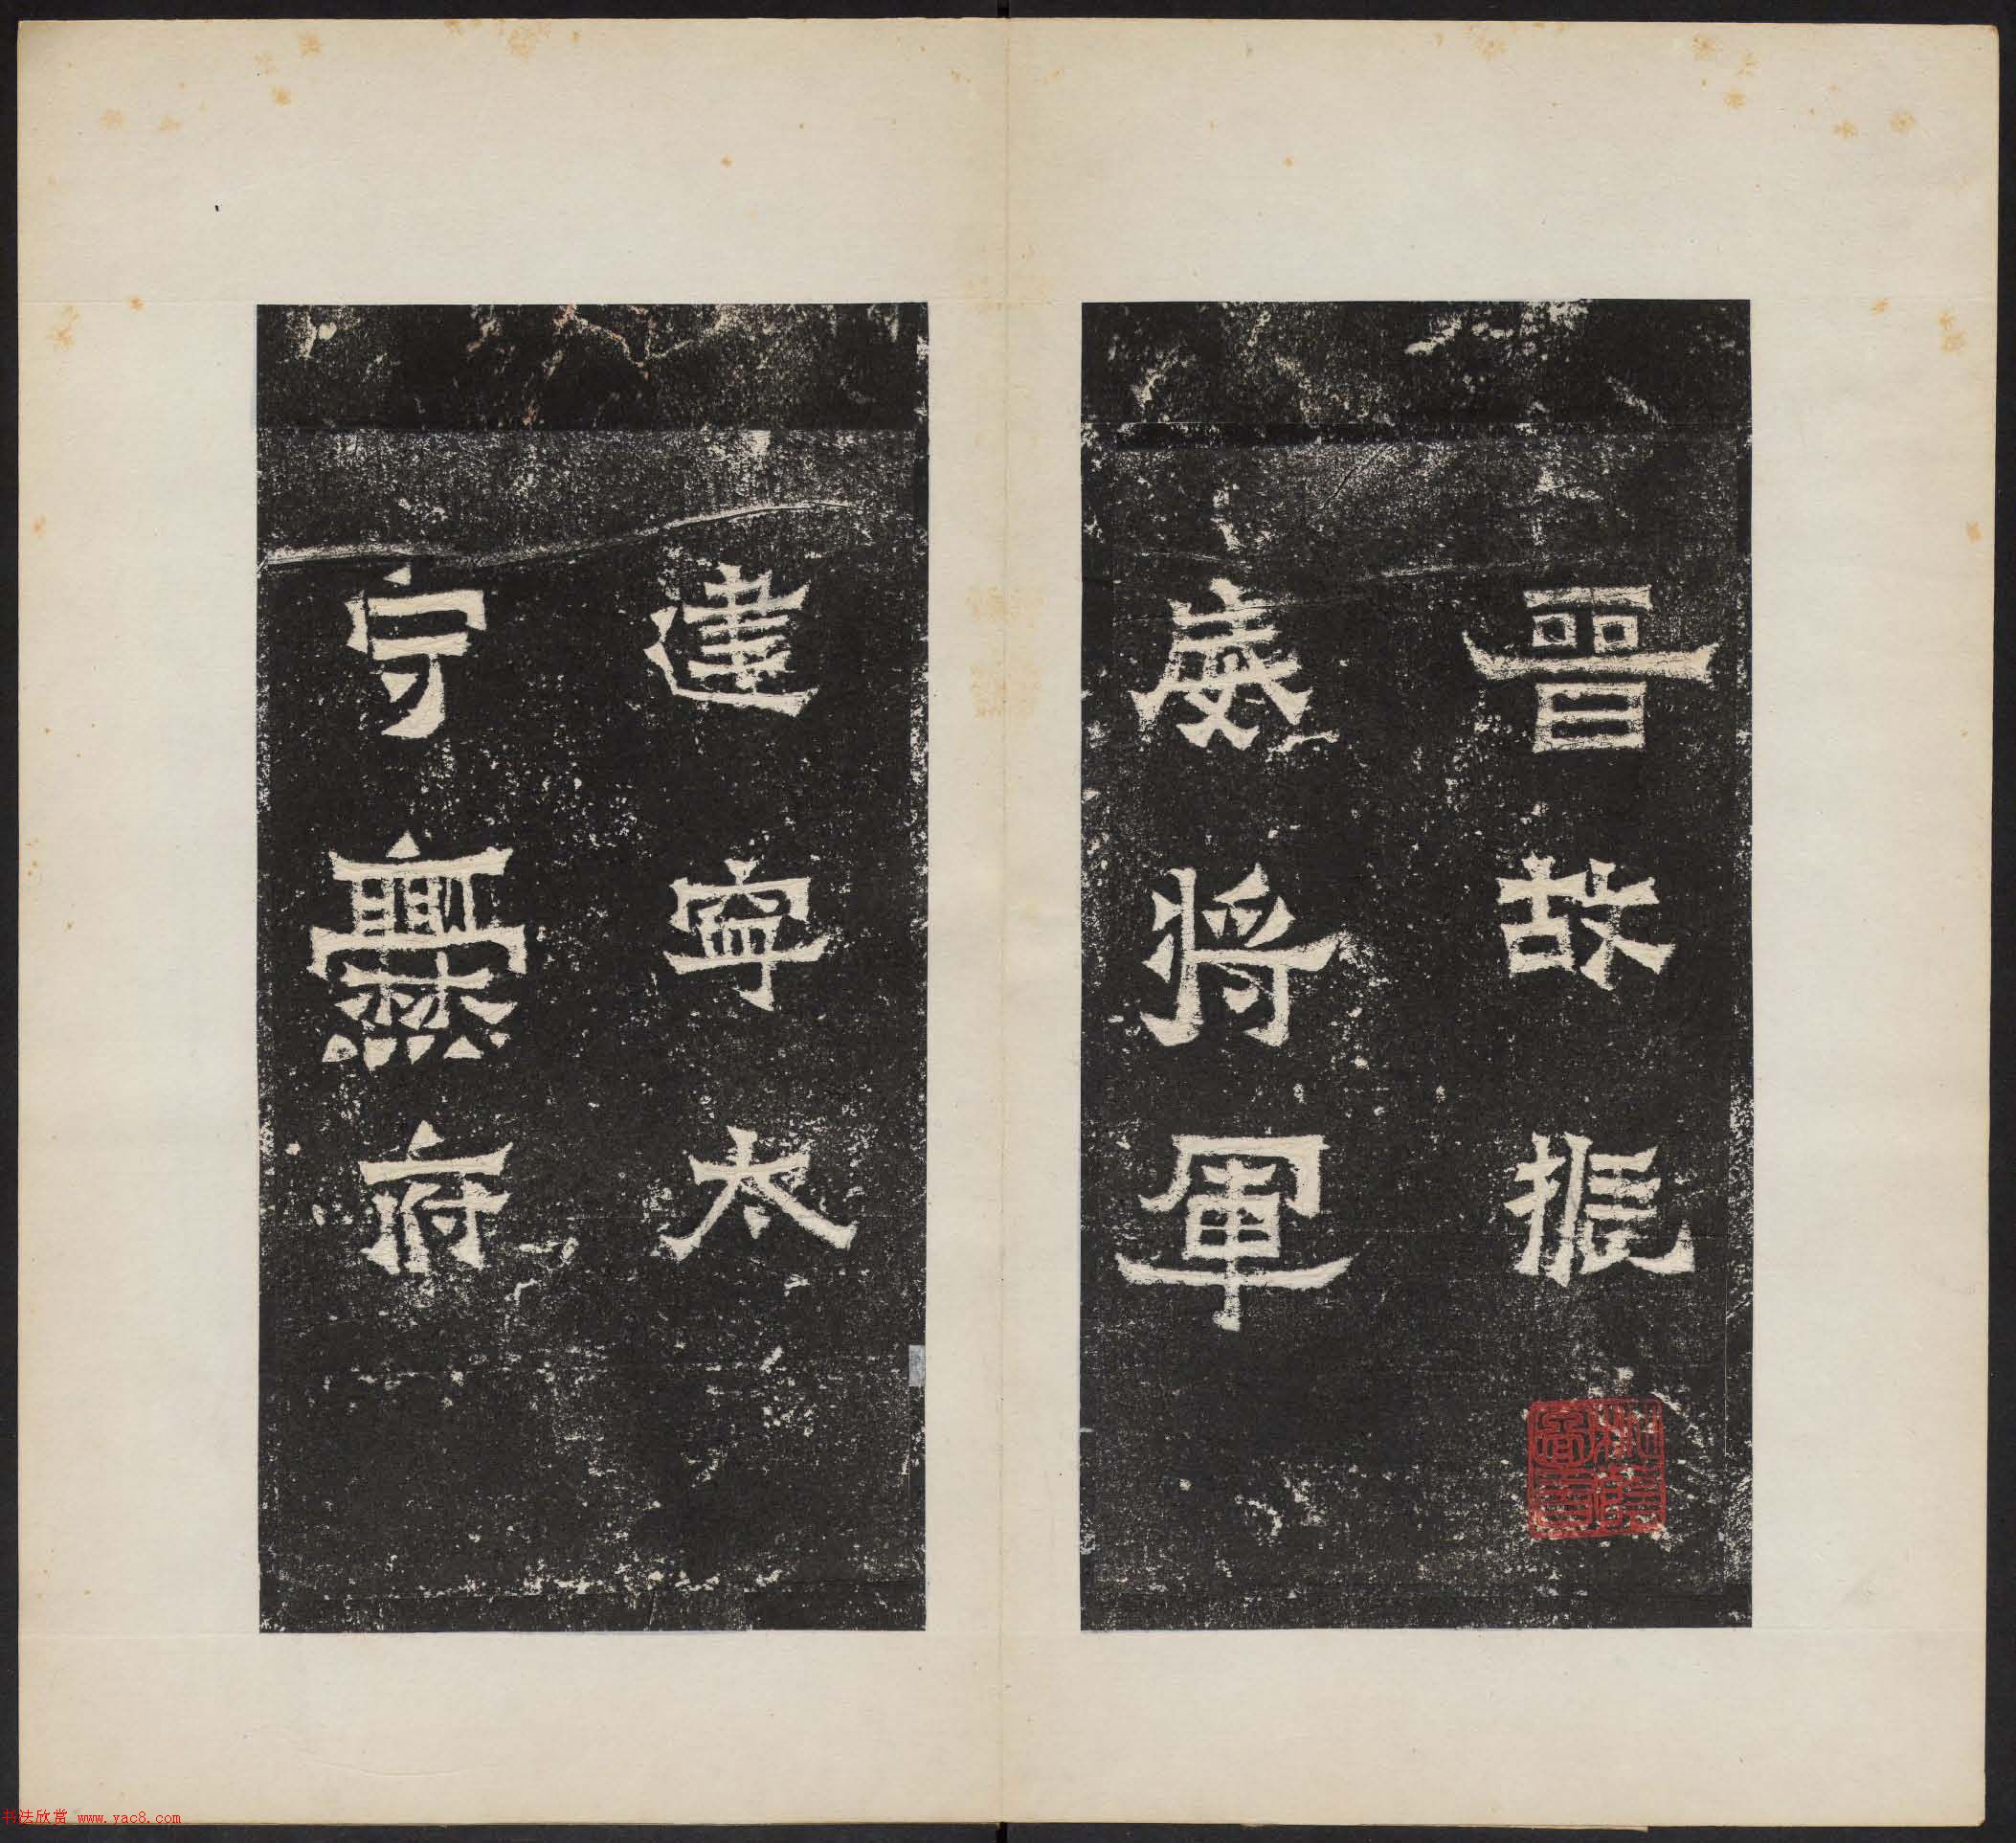 晉故振
威將軍
建寧太
守爨府
书法欣赏 www.yac8.com